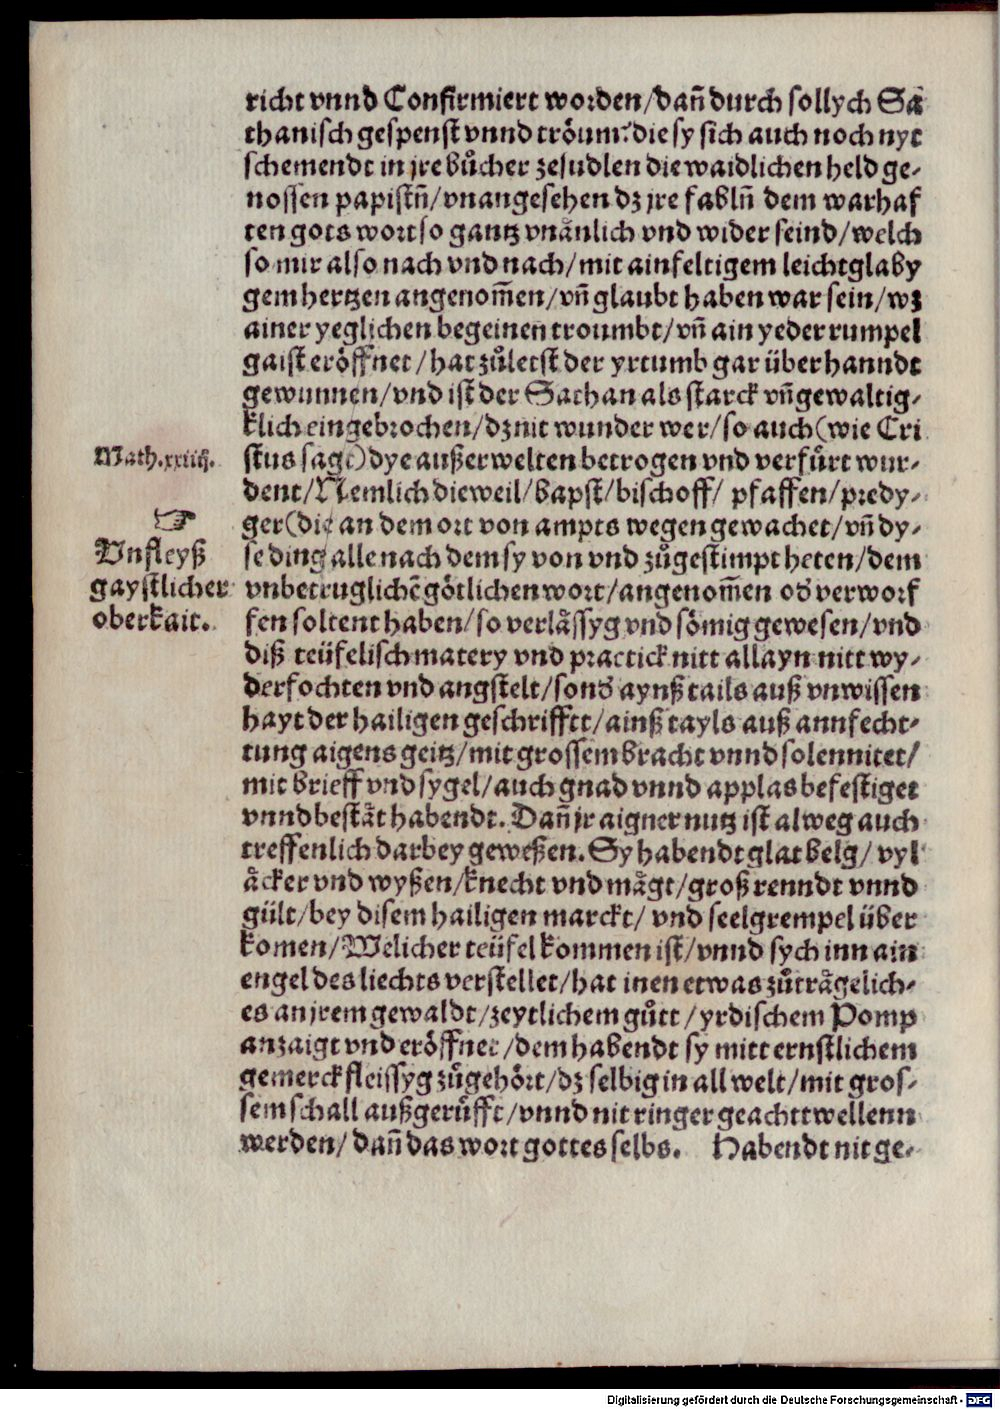 richt vnnd Confirmiert worden/dañ durch sollych Sa
thanisch gespenst vnnd tröum: die sy sich auch noch nyt
schemendt in jre bůcher zesudlen die waidlichen held ge-
nossen papistñ/vnangesehen dz jre fablñ dem warhaf
ten gots wort so gantz vnånlich vnd wider seind/welch
so mir also nach vnd nach/mit ainfeltigem leichtglaby
gem hertzen angenom̃en/vñ glaubt haben war sein/wz
ainer yeglichen begeinen troumbt/vñ ain yeder rumpel
gaist eröffnet/hat zůletst der yrtumb gar über hanndt
gewunnen/vnd ist der Sathan als starck vñ gewaltig-
klich eingebrochen/dz nit wunder wer/so auch (wie Cri
Math.xxiiij.
stus sagt) dye außerwelten betrogen vnd verfůrt wur-
dent/Nemlich dieweil/bapst/bischoff/ pfaffen/predy-
ger (die an dem ort von ampts wegen gewachet/vñ dy-
Vnfleyß
gaystlicher
oberkait.
se ding alle nach dem sy von vnd zůgestimpt heten/dem
vnbetruglichẽ götlichen wort/angenom̃en od verworf
fen soltent haben/so verlåssyg vnd sömig gewesen/vnd
diß teüfelisch matery vnd practick nitt allayn nitt wy-
derfochten vnd angstelt/sond aynß tails auß vnwissen
hayt der hailigen geschrifftt/ainß tayls auß annfecht-
tung aigens geitz/mit grossem bracht vnnd solennitet/
mit brieff vnd sygel/auch gnad vnnd applas befestiget
vnnd beståt habendt. Dañ jr aigner nutz ist alweg auch
treffenlich darbey geweßen. Sy habendt glat belg/ vyl
åcker vnd wyßen/knecht vnd mågt/groß renndt vnnd
gült/bey disem hailigen marckt/ vnd seelgrempel über
komen/Welicher teüfel kommen ist/vnnd sych inn ain
engel des liechts verstellet/hat inen etwas zůtrågelich-
es an jrem gewaldt/zeytlichem gůtt/yrdischem Pomp
anzaigt vnd eröffnet/dem habendt sy mitt ernstlichem
gemerck fleissyg zůgehört/dz selbig in all welt/mit gros-
sem schall außgerůfft/vnnd nit ringer geachtt wellenn
werden/ dañ das wort gottes selbs. Habendt nit ge-
Digitalisierung gefördert durch die Deutsche Forschungsgemeinschaft - DFG